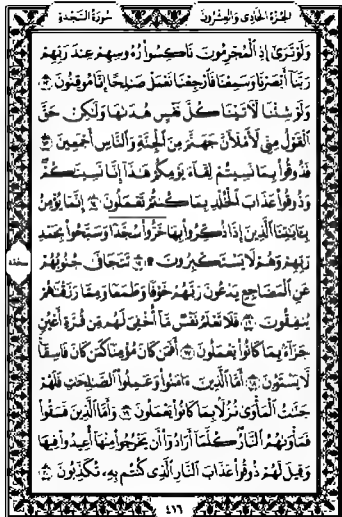 الجزء الحادي والعشرون سورة السجدة
وَلَوْ تَرَىٰ إِذِ الْمُجْرِمُونَ نَاكِسُوا رُءُوسِهِمْ عِندَ رَبِّهِمْ
رَبَّنَا أَبْصَرْنَا وَسَمِعْنَا فَارْجِعْنَا نَعْمَلْ صَالِحًا إِنَّا مُوقِنُونَ ١٢
وَلَوْ شِئْنَا لَآتَيْنَا كُلَّ نَفْسٍ هُدَاهَا وَلَٰكِنْ حَقَّ
الْقَوْلُ مِنِّي لَأَمْلَأَنَّ جَهَنَّمَ مِنَ الْجِنَّةِ وَالنَّاسِ أَجْمَعِينَ ١٣
فَذُوقُوا بِمَا نَسِيتُمْ لِقَاءَ يَوْمِكُمْ هَٰذَا إِنَّا نَسِينَاكُمْ
وَذُوقُوا عَذَابَ الْخُلْدِ بِمَا كُنتُمْ تَعْمَلُونَ ١٤ إِنَّمَا يُؤْمِنُ
بِآيَاتِنَا الَّذِينَ إِذَا ذُكِّرُوا بِهَا خَرُّوا سُجَّدًا وَسَبَّحُوا بِحَمْدِ
رَبِّهِمْ وَهُمْ لَا يَسْتَكْبِرُونَ ۩ ١٥ تَتَجَافَىٰ جُنُوبُهُمْ
سجدة
عَنِ الْمَضَاجِعِ يَدْعُونَ رَبَّهُمْ خَوْفًا وَطَمَعًا وَمِمَّا رَزَقْنَاهُمْ
يُنفِقُونَ ١٦ فَلَا تَعْلَمُ نَفْسٌ مَّا أُخْفِيَ لَهُم مِّن قُرَّةِ أَعْيُنٍ
جَزَاءً بِمَا كَانُوا يَعْمَلُونَ ١٧ أَفَمَن كَانَ مُؤْمِنًا كَمَن كَانَ فَاسِقًا
لَّا يَسْتَوُونَ ١٨ أَمَّا الَّذِينَ آمَنُوا وَعَمِلُوا الصَّالِحَاتِ فَلَهُمْ
جَنَّاتُ الْمَأْوَىٰ نُزُلًا بِمَا كَانُوا يَعْمَلُونَ ١٩ وَأَمَّا الَّذِينَ فَسَقُوا
فَمَأْوَاهُمُ النَّارُ كُلَّمَا أَرَادُوا أَن يَخْرُجُوا مِنْهَا أُعِيدُوا فِيهَا
وَقِيلَ لَهُمْ ذُوقُوا عَذَابَ النَّارِ الَّذِي كُنتُم بِهِ تُكَذِّبُونَ ٢٠
٤١٦